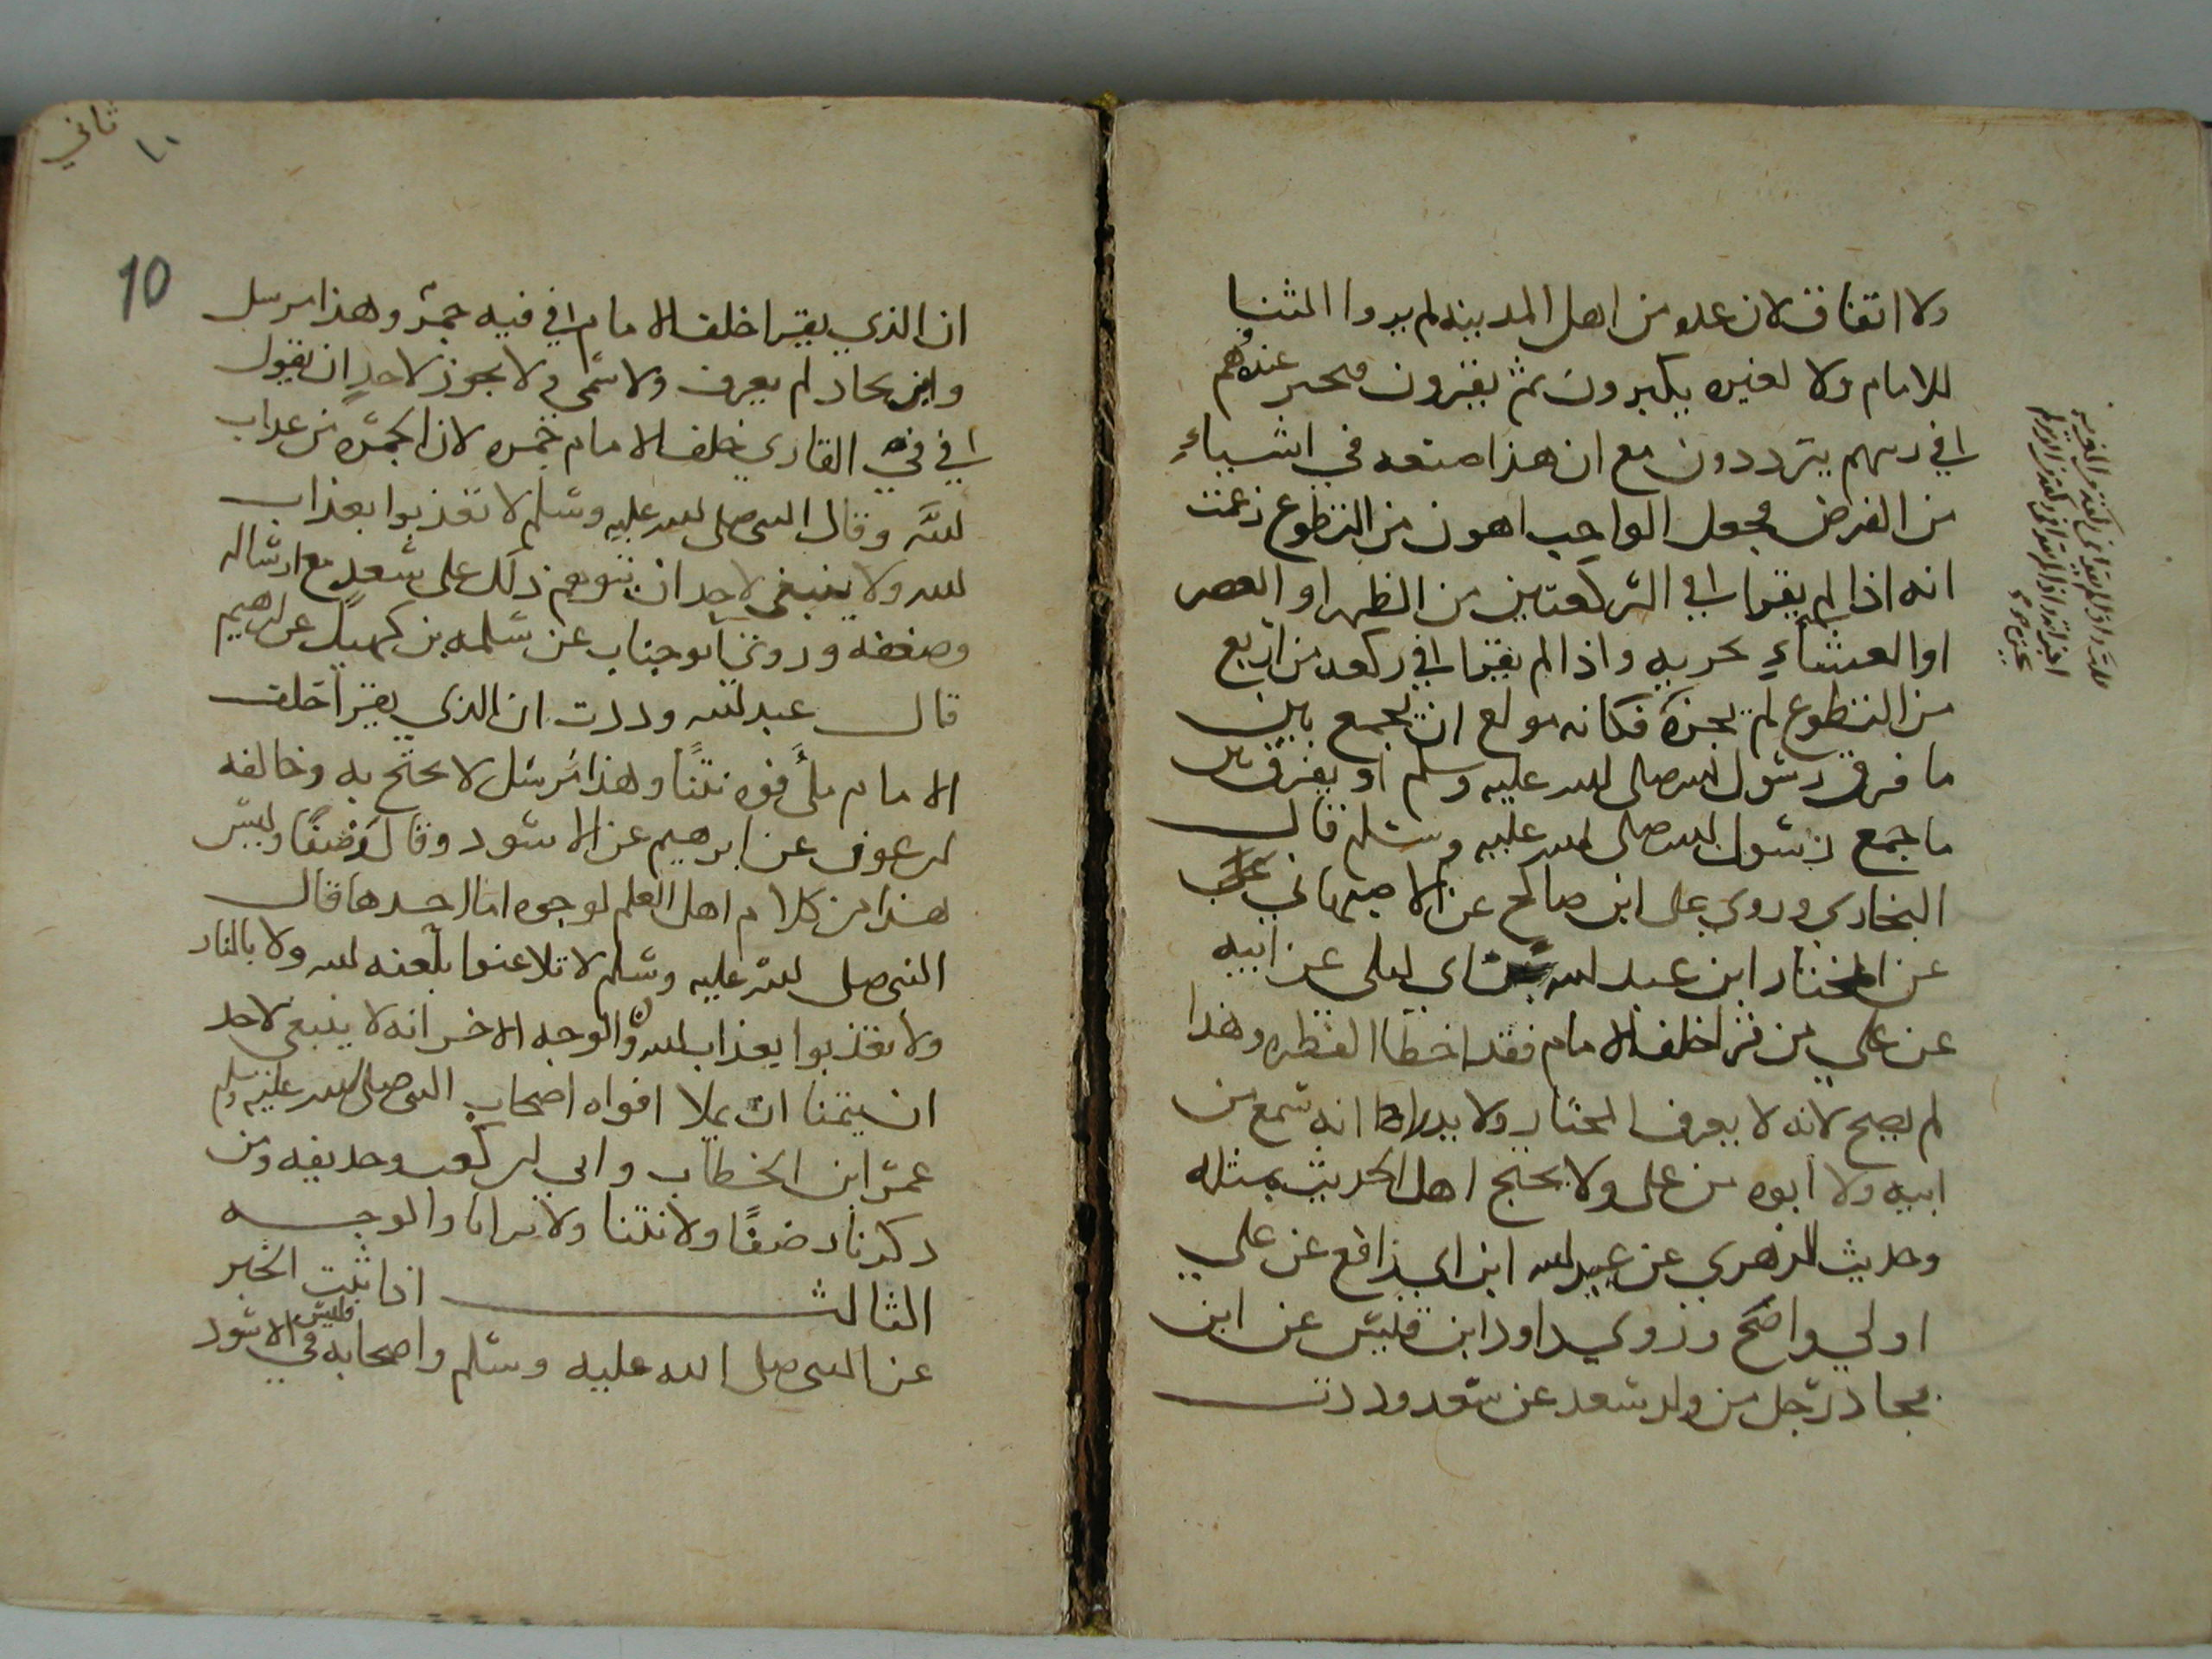 ولا اتفاق لان عده من اهل المدينه لم يروا الثنيا
للامام ولا لغيره يكبرون ثم يقرون فحير عندهم
في رسهم يترددون مع ان هذا صنعه في اشياء
من الفرض فجعل الواجب اهون من التطوع زعمت
انه اذا لم يقرا في الركعتين من الظهر او العصر
او العشاء يجزيه واذا لم يقرا في ركعه من اربع
من التطوع لم يجزه فكانه مولع ان يجمع بين
ما فرق رسول الله صلى الله عليه وسلم او يفرق بين
ما جمع رسول الله صلى الله عليه وسلم قال
البخاري وروى على ابن صالح عن الاصبهاني
عن المختار ابن عبد الله بن ابي ليلى عن ابيه
عن علي من قرا خلف الامام فقد اخطا الفطره وهذا
لم يصح لانه لا يعرف المختار ولا يدرا انه سمع من
ابيه ولا ابوه من على ولا يحتج اهل الحديث بمثله
وحديث الزهري عن عبيد الله ابن ابي رافع عن علي
اولي واصح وروي داود ابن قيس عن ابن
بجاد رجل من ولد سعد عن سعد وددت
ثاني
١٠
10
ان الذي يقرا خلف الامام في فيه جمر وهذا مرسل
وابن بجاد لم يعرف ولا سمي ولا يجوز لاحد ان يقول
في في القاري خلف الامام جمره لان الجمره من عذاب
الله وقال النبي صلى الله عليه وسلم لا تعذبوا بعذاب
الله ولا ينبغي لاحد ان يتوهم ذلك على سعد مع ارساله
وضعفه وروى ابو جناب عن سلمه بن كهيل عن ابرهيم
قال عبد الله وددت ان الذي يقرا خلف
الامام ملأ فوه نتنًا وهذا مرسل لا يحتج به وخالفه
ابن عون عن ابرهيم عن الاسود وقال رضفًا وليس
هذا من كلام اهل العلم لوجوه اما احدها قال
النبي صلى الله عليه وسلم لا تلاعنوا بلعنه الله ولا بالنار
ولا تعذبوا بعذاب الله والوجه الاخر انه لا ينبغي لاحد
ان يتمنا ان يملا افواه اصحاب النبي صلى الله عليه وسلم
عمر ابن الخطاب وابي ابن كعب وحذيفه ومن
ذكرنا رضفًا ولا نتنا ولا ترابا والوجه
الثالث اذا ثبت الخبر
عن النبي صلى الله عليه وسلم واصحابه فليس في الاسود